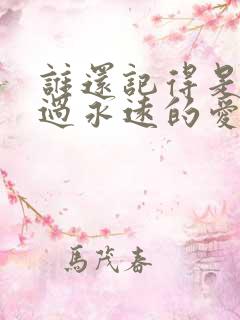 誰還記得是
過永遠的愛
馬茂春